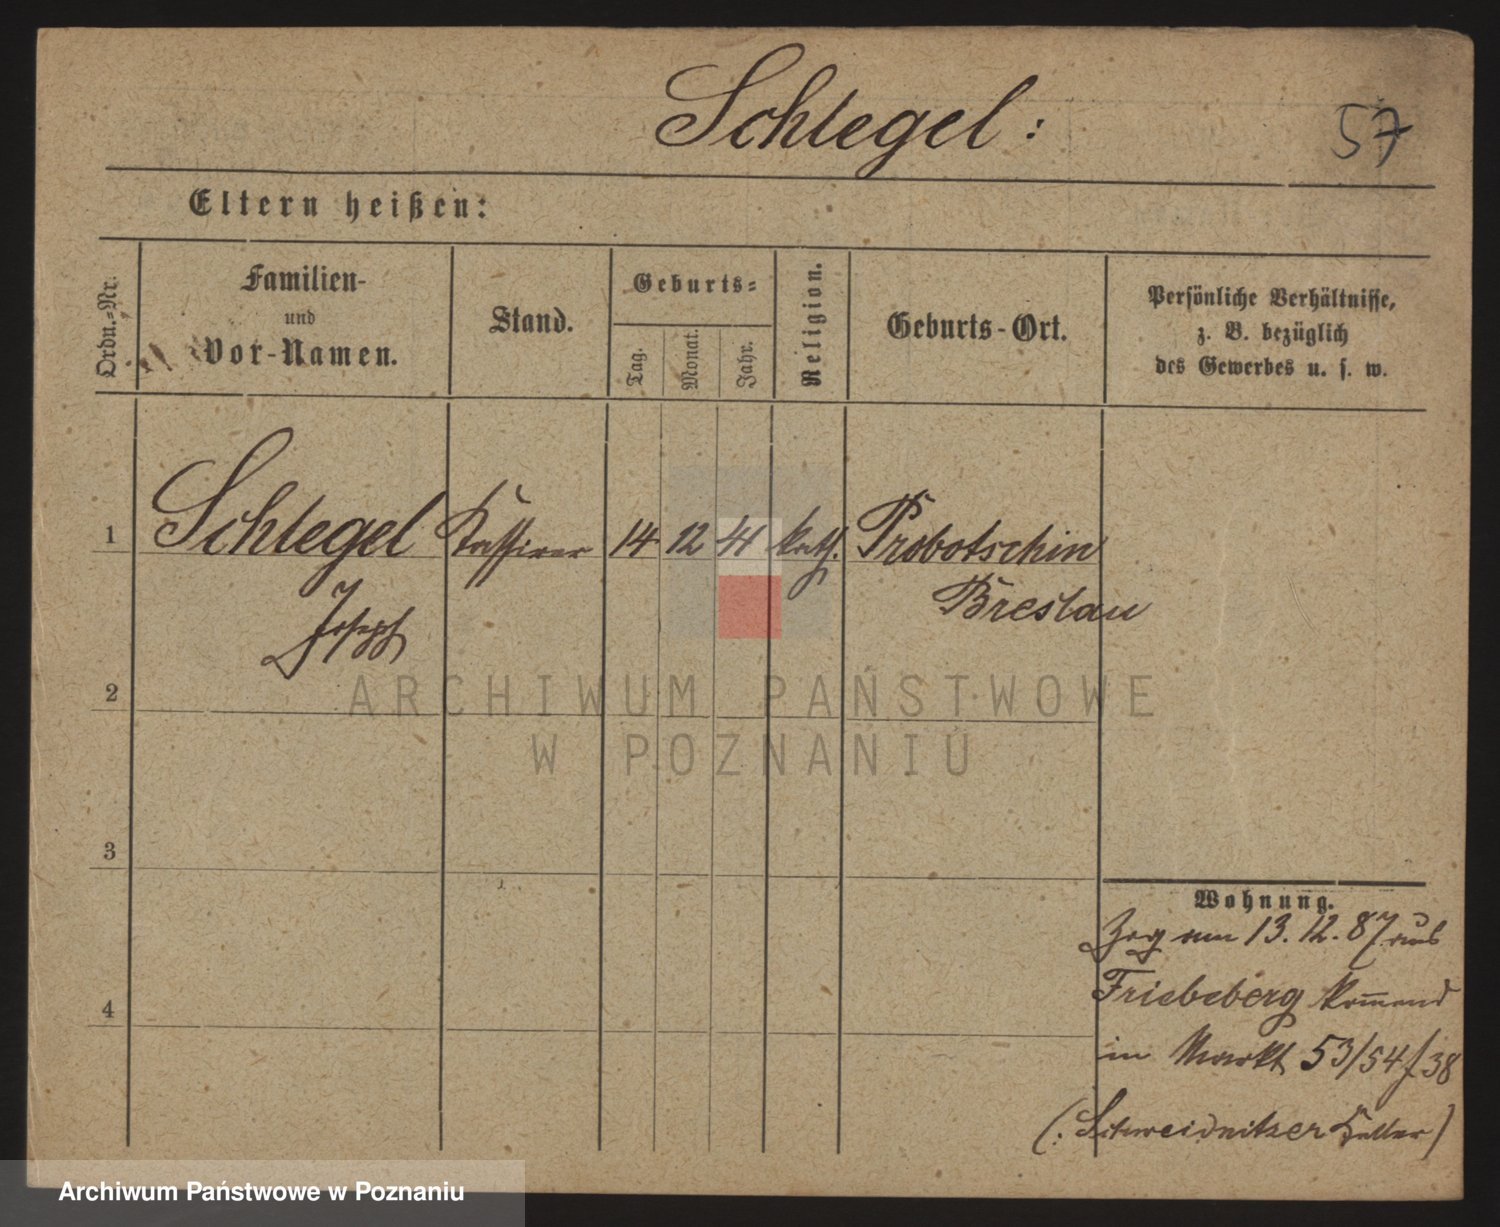 Schlegel:
57
Eltern heißen:
Ordn.-Nr.
Familien-
und
Vor-Namen.
Stand.
Geburts-
Tag.
Monat.
Jahr.
Religion.
Geburts-Ort.
Persönliche Verhältnisse,
z. B. bezüglich
des Gewerbes u. s. w.
1 Schlegel Kassirer 14 12 41 kath. Probotschin
Joseph Breslau
2
3
4
Wohnung.
Zog am 13.12.87 aus
Friebeberg komend
in Markt 53/54 38
(: Schweidnitzer Keller)
ARCHIWUM PAŃSTWOWE
W POZNANIU
Archiwum Państwowe w Poznaniu